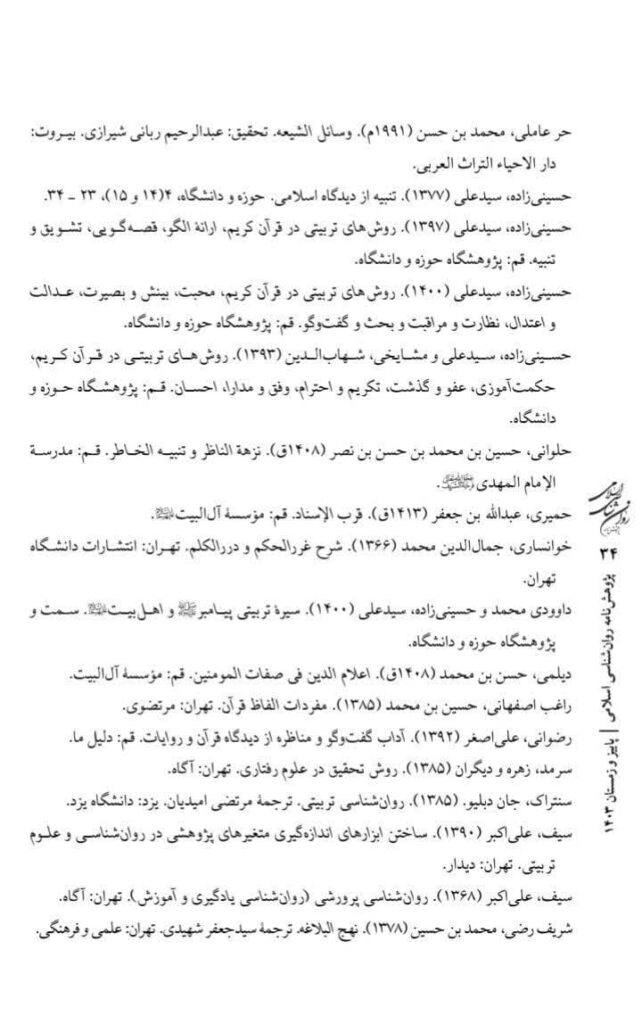 حر عاملی، محمد بن حسن (۱۹۹۱م). وسائل الشیعه. تحقیق: عبدالرحیم ربانی شیرازی. بیروت:
دار الاحیاء التراث العربی.
حسینی‌زاده، سیدعلی (۱۳۷۷). تنبیه از دیدگاه اسلامی. حوزه و دانشگاه، ۴(۱۴ و ۱۵)، ۲۳ - ۳۴.
حسینی‌زاده، سیدعلی (۱۳۹۷). روش‌های تربیتی در قرآن کریم، ارائۀ الگو، قصه‌گویی، تشویق و
تنبیه. قم: پژوهشگاه حوزه و دانشگاه.
حسینی‌زاده، سیدعلی (۱۴۰۰). روش‌های تربیتی در قرآن کریم، محبت، بینش و بصیرت، عدالت
و اعتدال، نظارت و مراقبت و بحث و گفت‌وگو. قم: پژوهشگاه حوزه و دانشگاه.
حسینی‌زاده، سیدعلی و مشایخی، شهاب‌الدین (۱۳۹۳). روش‌های تربیتی در قرآن کریم،
حکمت‌آموزی، عفو و گذشت، تکریم و احترام، وفق و مدارا، احسان. قم: پژوهشگاه حوزه و
دانشگاه.
حلوانی، حسین بن محمد بن حسن بن نصر (۱۴۰۸ق). نزهة الناظر و تنبیه الخاطر. قم: مدرسة
الإمام المهدی.
حمیری، عبدالله بن جعفر (۱۴۱۳ق). قرب الإسناد. قم: مؤسسة آل‌البیت.
خوانساری، جمال‌الدین محمد (۱۳۶۶). شرح غررالحکم و دررالکلم. تهران: انتشارات دانشگاه
تهران.
داوودی محمد و حسینی‌زاده، سیدعلی (۱۴۰۰). سیرۀ تربیتی پیامبرﷺ و اهل‌بیت. سمت و
پژوهشگاه حوزه و دانشگاه.
دیلمی، حسن بن محمد (۱۴۰۸ق). اعلام الدین فی صفات المومنین. قم: مؤسسة آل‌البیت.
راغب اصفهانی، حسین بن محمد (۱۳۸۵). مفردات الفاظ قرآن. تهران: مرتضوی.
رضوانی، علی‌اصغر (۱۳۹۲). آداب گفت‌وگو و مناظره از دیدگاه قرآن و روایات. قم: دلیل ما.
سرمد، زهره و دیگران (۱۳۸۵). روش تحقیق در علوم رفتاری. تهران: آگاه.
سنتراک، جان دبلیو. (۱۳۸۵). روان‌شناسی تربیتی. ترجمۀ مرتضی امیدیان. یزد: دانشگاه یزد.
سیف، علی‌اکبر (۱۳۹۰). ساختن ابزارهای اندازه‌گیری متغیرهای پژوهشی در روان‌شناسی و علوم
تربیتی. تهران: دیدار.
سیف، علی‌اکبر (۱۳۶۸). روان‌شناسی پرورشی (روان‌شناسی یادگیری و آموزش). تهران: آگاه.
شریف رضی، محمد بن حسین (۱۳۷۸). نهج البلاغه. ترجمۀ سیدجعفر شهیدی. تهران: علمی و فرهنگی.
روان‌شناسی اسلامی
۳۴
پژوهش‌نامه روان‌شناسی اسلامی | پاییز و زمستان ۱۴۰۳